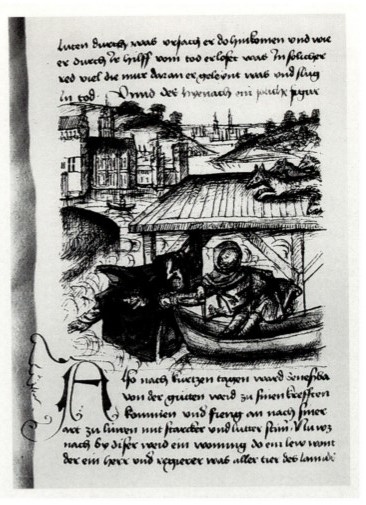 luten durch was ursach er do hinkomen und wie
er durch ir hilff vom tod erlost was In solicher
red viel die mur daran er geleynt was und slug
in tod. Unnd des hyenach ein figur
Also nach kurtzen tagen ward senesba
von der guten weid zu sinen krefften
kommen und fieng an nach siner
art zu luwen mit starcker und luter stim. Nu wz
nach by diser weid ein wonung do ein lew wont
der ein herr und regierer was aller tier des lands